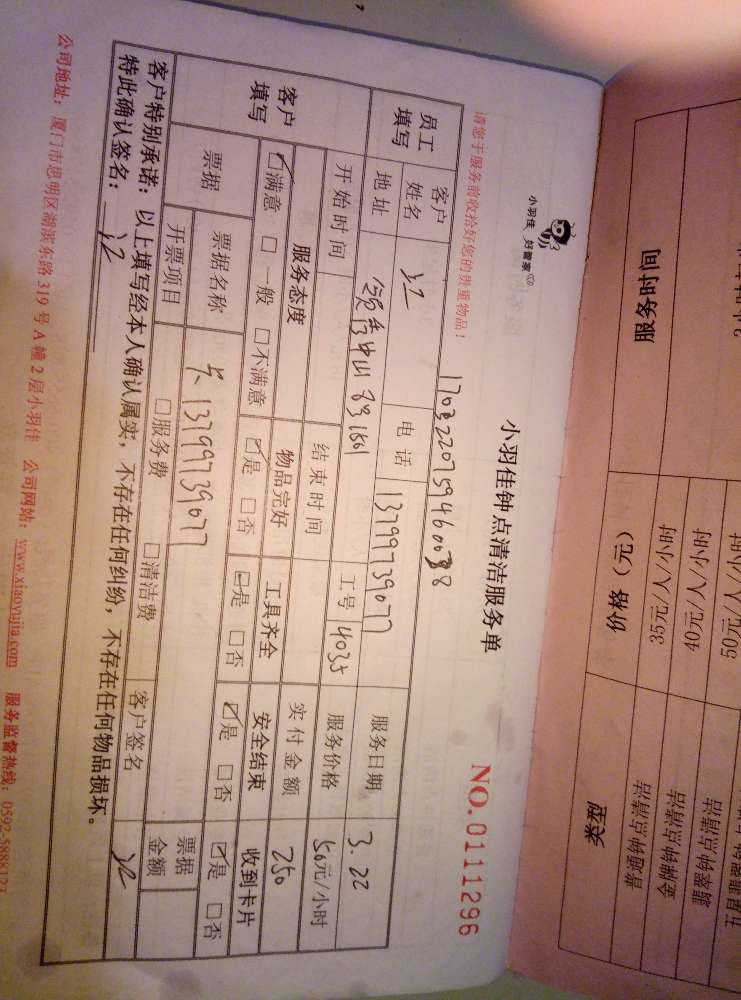 小羽佳 好管家
小羽佳钟点清洁服务单
NO.0111296
请您于服务前收拾好您的贵重物品！
员工填写
客户姓名
电话 13799739077
服务日期 3.22
地址
工号 4035
服务价格 50元/小时
客户填写
开始时间
结束时间
实付金额 250
服务态度 物品完好 工具齐全 安全结束 收到卡片
☑满意 □一般 □不满意 ☑是 □否 ☑是 □否 ☑是 □否 ☑是 □否
票据
票据名称 13799739077
票据金额
开票项目 □服务费 □清洁费 客户签名
客户特别承诺：以上填写经本人确认属实，不存在任何纠纷，不存在任何物品损坏。
特此确认签名：
公司地址：厦门市思明区湖滨东路319号A幢2层小羽佳 公司网站：www.xiaoyujia.com 服务监督热线：0592-5888123
服务时间 价格（元） 类型
35元/人/小时 普通钟点清洁
40元/人/小时 金牌钟点清洁
50元/人/小时 翡翠钟点清洁